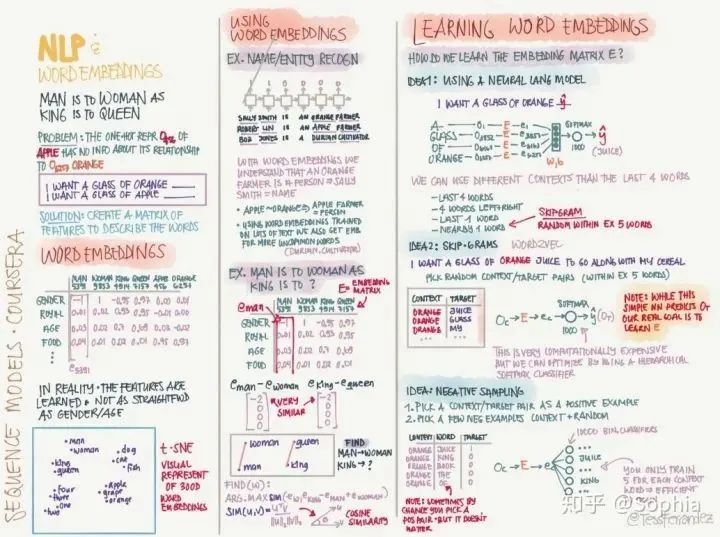 SEQUENCE MODELS · COURSERA
NLP &
WORD EMBEDDINGS
MAN IS TO WOMAN AS
KING IS TO QUEEN
PROBLEM: THE ONE-HOT REPR OF
APPLE HAS NO INFO ABOUT ITS RELATIONSHIP
TO ORANGE
I WANT A GLASS OF ORANGE ____
I WANT A GLASS OF APPLE ____
SOLUTION: CREATE A MATRIX OF
FEATURES TO DESCRIBE THE WORDS
WORD EMBEDDINGS
MAN WOMAN KING QUEEN APPLE ORANGE
5391 9853 4914 7157 456 6257
GENDER -1 1 -0.95 0.97 0.00 0.01
ROYAL 0.01 0.02 0.93 0.95 -0.01 0.00
AGE 0.03 0.02 0.7 0.69 0.03 -0.02
FOOD 0.04 0.01 0.02 0.01 0.95 0.97
e5391
IN REALITY · THE FEATURES ARE
LEARNED & NOT AS STRAIGHTFWD
AS GENDER/AGE
man
woman
dog
cat
fish
king
queen
four
three
one
two
apple
grape
orange
t-SNE
VISUAL
REPRESENT
OF 300D
WORD
EMBEDDINGS
USING
WORD EMBEDDINGS
EX. NAME/ENTITY RECOGN
1 1 0 0 0 0
SALLY SMITH IS AN ORANGE FARMER
ROBERT LIN IS AN APPLE FARMER
BOB JONES IS A DURIAN CULTIVATOR
WITH WORD EMBEDDINGS WE
UNDERSTAND THAT AN ORANGE
FARMER IS A PERSON ⇒ SALLY
SMITH = NAME
• APPLE ~ ORANGE ⇒ APPLE FARMER
= PERSON
• USING WORD EMBEDDINGS TRAINED
ON LOTS OF TEXT WE ALSO GET EMB
FOR MORE UNCOMMON WORDS
(DURIAN, CULTIVATOR)
EX. MAN IS TO WOMAN AS
KING IS TO ?
E = EMBEDDING
MATRIX
eman
MAN WOMAN KING QUEEN
5391 9853 4914 7157
GENDER -1 1 -0.95 0.97
ROYAL 0.01 0.02 0.93 0.95
AGE 0.03 0.02 0.70 0.69
FOOD 0.09 0.01 0.02 0.01
eman - ewoman eking - equeen
[-2 0 0 0] VERY SIMILAR [-2 0 0 0]
woman queen
man king
FIND
MAN→WOMAN
KING→?
FIND(W):
ARG MAX SIM(ew, eking - eman + ewoman)
SIM(u,v) = uᵀv / ||u||₂||v||₂
COSINE
SIMILARITY
LEARNING WORD EMBEDDINGS
HOW DO WE LEARN THE EMBEDDING MATRIX E?
IDEA 1: USING A NEURAL LANG MODEL
I WANT A GLASS OF ORANGE ŷ
A → E → e
GLASS → E → e
OF → E → e
ORANGE → E → e
SOFTMAX
ŷ
(JUICE)
W,b
WE CAN USE DIFFERENT CONTEXTS THAN THE LAST 4 WORDS
- LAST 4 WORDS
- 4 WORDS LEFT+RIGHT
- LAST 1 WORD
- NEARBY 1 WORD
SKIPGRAM
RANDOM WITHIN EX 5 WORDS
IDEA 2: SKIP-GRAMS WORD2VEC
I WANT A GLASS OF ORANGE JUICE TO GO ALONG WITH MY CEREAL
PICK RANDOM CONTEXT/TARGET PAIRS (WITHIN EX 5 WORDS)
CONTEXT TARGET
ORANGE JUICE
ORANGE GLASS
ORANGE MY
SOFTMAX
Oc → E → ec → ŷ
NOTE: WHILE THIS
SIMPLE NN PREDICTS ŷ
OUR REAL GOAL IS TO
LEARN E
THIS IS VERY COMPUTATIONALLY EXPENSIVE
BUT WE CAN OPTIMIZE BY USING A HIERARCHICAL
SOFTMAX CLASSIFIER
IDEA: NEGATIVE SAMPLING
1. PICK A CONTEXT/TARGET PAIR AS A POSITIVE EXAMPLE
2. PICK A FEW NEG EXAMPLES CONTEXT + RANDOM
CONTEXT WORD TARGET
ORANGE JUICE 1
ORANGE KING 0
ORANGE BOOK 0
ORANGE THE 0
ORANGE OF 0
NOTE: SOMETIMES BY
CHANCE YOU PICK A
POS PAIR - BUT IT DOESN'T
MATTER
Oc → E → ec
10000 BIN. CLASSIFIERS
JUICE
KING
YOU ONLY TRAIN
5 FOR EACH CONTEXT
WORD ⇒ EFFICIENT
知乎 @Sophia
@TessFerrandez